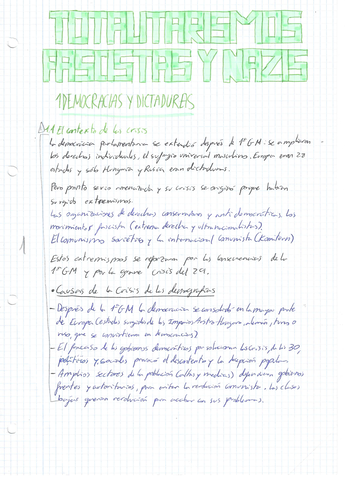 TOTALITARISMOS
FASCISTAS Y NAZIS
1 DEMOCRACIAS Y DICTADURAS
1.1 El contexto de la crisis
la democracia parlamentaria se extendió después de 1ª GM. se ampliaron
los derechos individuales, el sufragio universal masculino. Europa eran 28
estados y sólo Hungría y Rusia eran dictaduras.
Pero pronto se vio amenazada y su crisis se originó porque habían
surgido extremismos.
Las organizaciones de derechas conservadoras y antidemocráticas, los
movimientos fascista (extrema derecha y ultranacionalistas).
El comunismo soviético y la internacional comunista (Komintern)
Estos extremismos se reforzaron por las consecuencias de la
1ª GM y por la grave crisis del 29.
• Causas de la Crisis de las democracias
- Después de la 1ª GM la democracia se consolidó en la mayor parte
de Europa (estados surgidos de los Imperios Austro Hungaro, alemán, turco o
ruso, que se convirtieron en democracias)
- El fracaso de los gobiernos democráticos por solucionar las crisis de los 30,
políticos y sociales provocó el descontento y la desafección popular.
- Amplios sectores de la población (altas y medias) defendieron gobiernos
fuertes y autoritarios, para evitar la revolución comunista. las clases
bajas querían revolución para acabar con sus problemas.
1